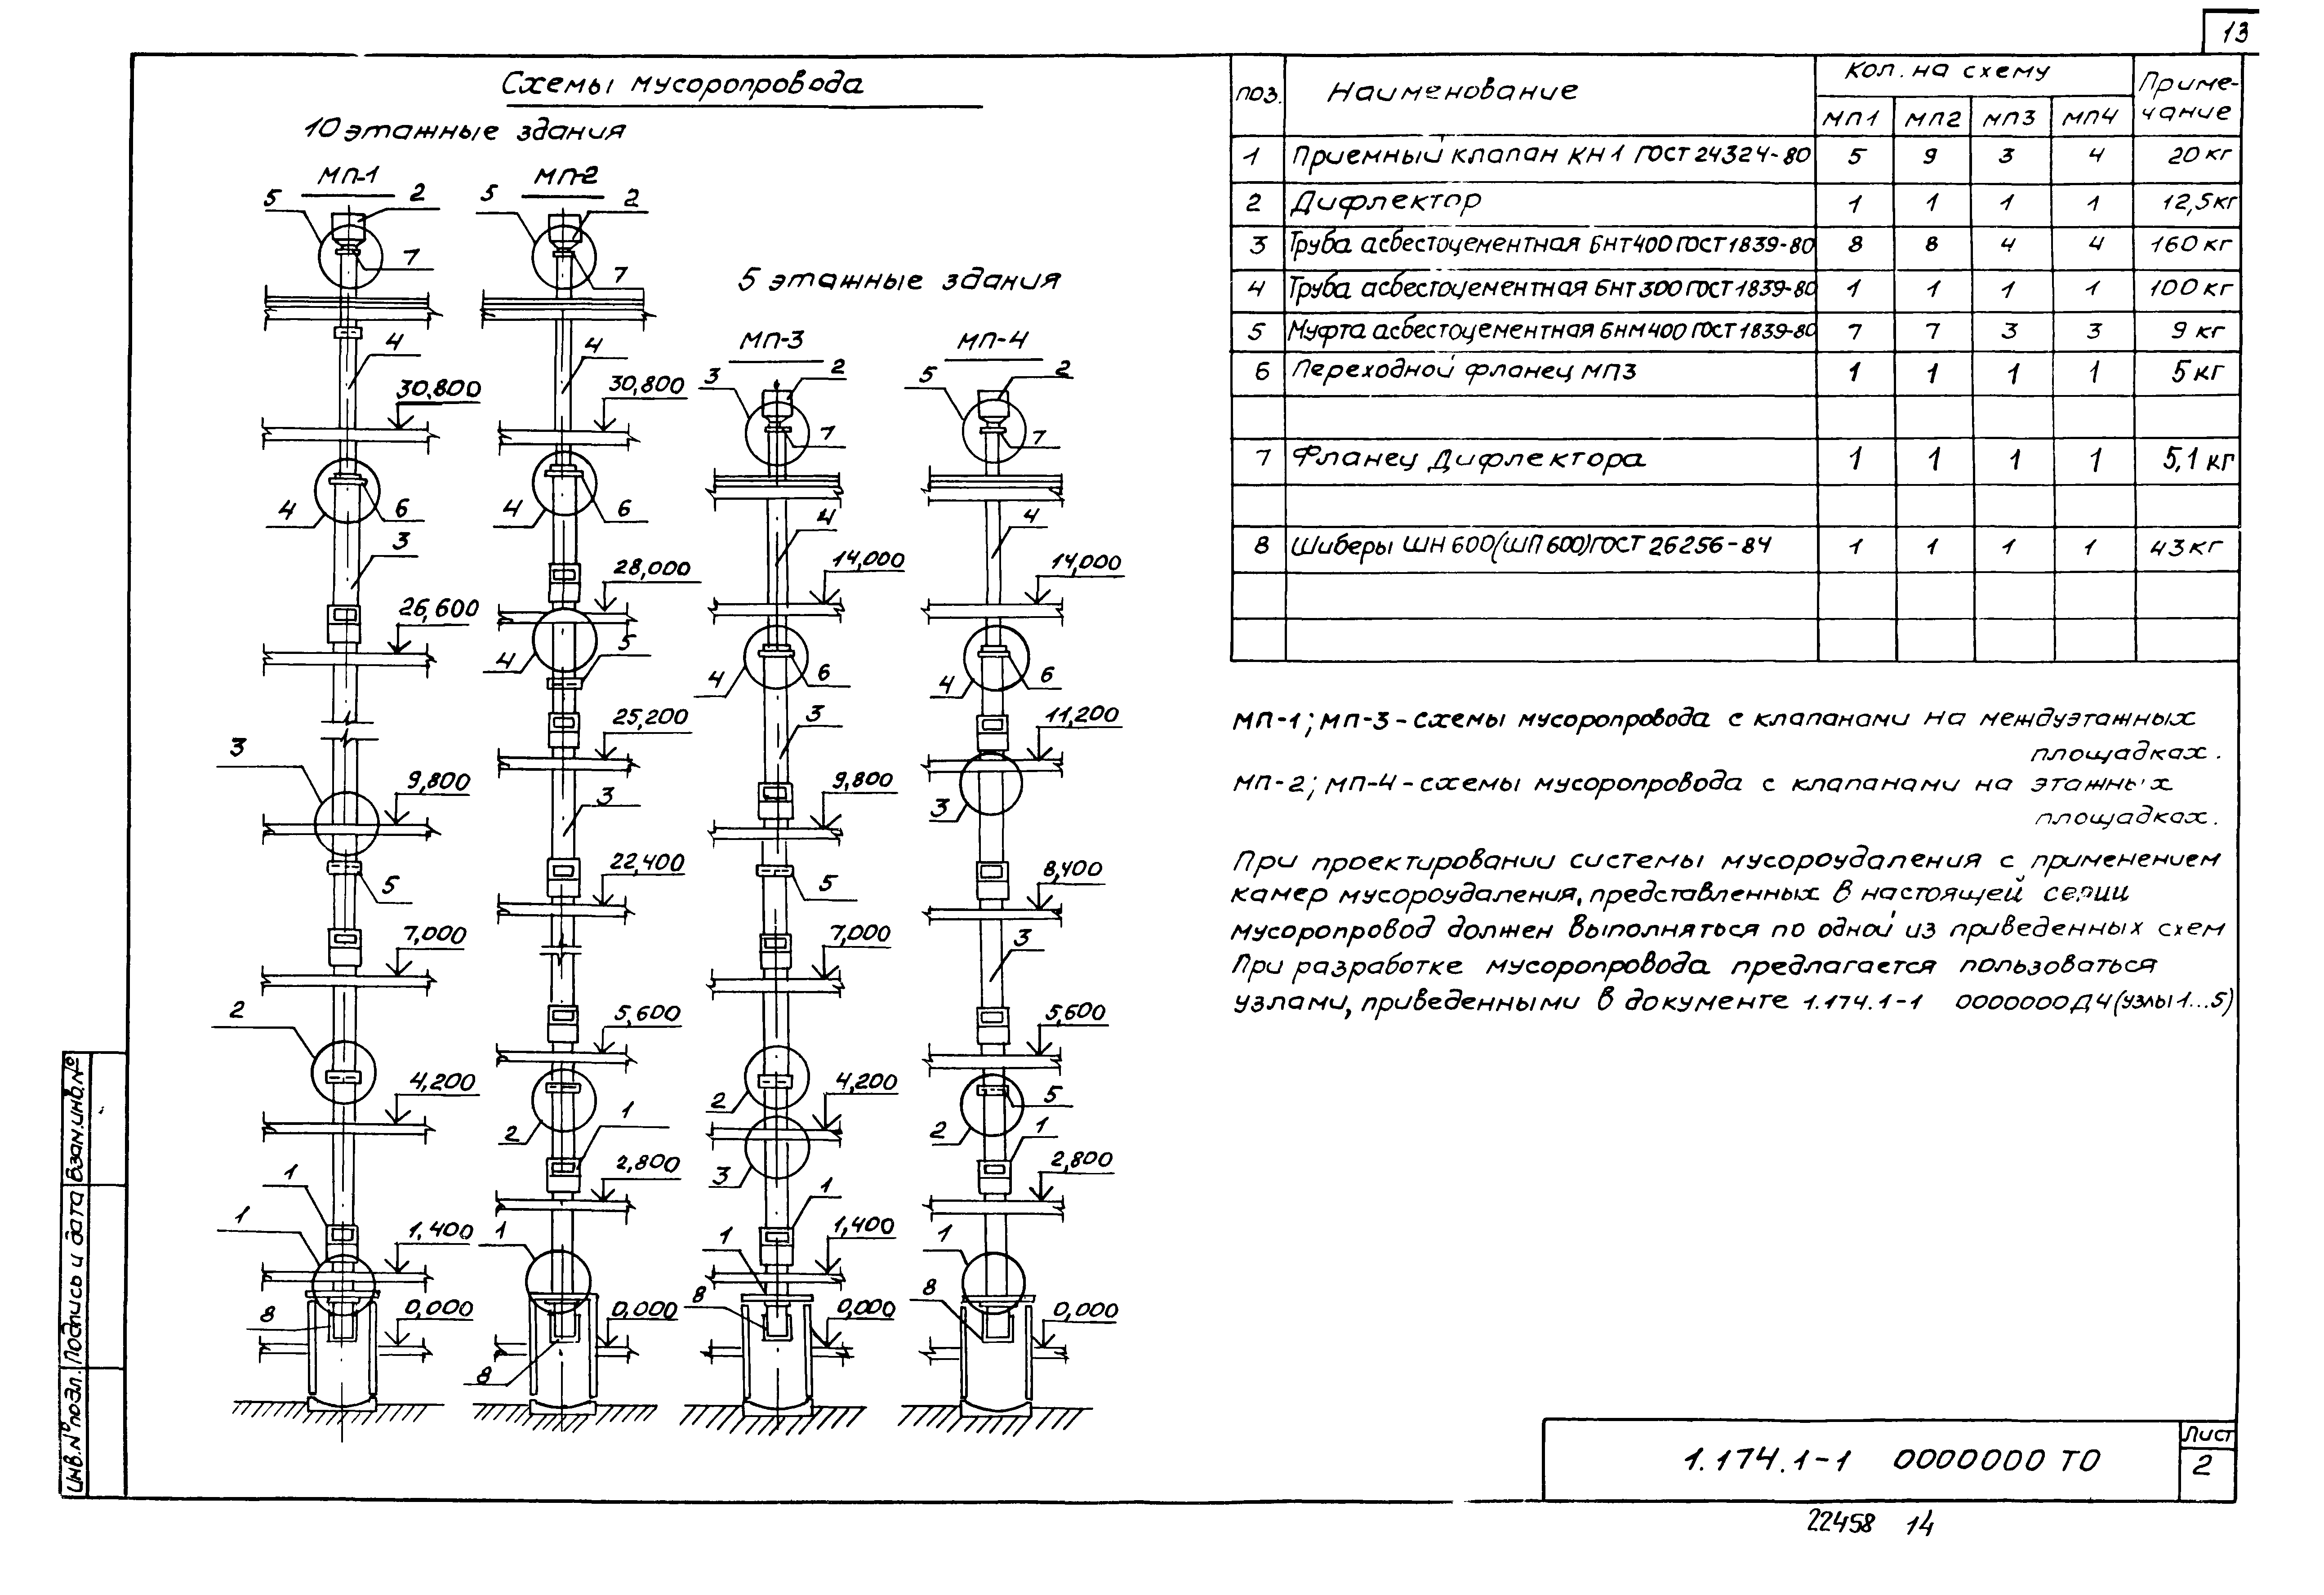 13
Схемы мусоропровода
10 этажные здания
МП-1
МП-2
5
2
7
4
30,800
4
6
3
26,600
3
9,800
5
7,000
2
4,200
1
1
1,400
8
0,000
5
2
7
4
30,800
4
6
28,000
4
5
25,200
3
22,400
5,600
2
1
2,800
1
0,000
8
5 этажные здания
МП-3
МП-4
3
2
7
4
14,000
4
6
3
9,800
5
7,000
2
4,200
3
1
1
1,400
8
0,000
5
2
7
4
14,000
4
6
11,200
3
8,400
3
5,600
5
2
1
2,800
1
8
0,000
поз. Наименование Кол. на схему Приме-
МП1 МП2 МП3 МП4 чание
1 Приемный клапан КН1 ГОСТ 24324-80 5 9 3 4 20 кг
2 Дифлектор 1 1 1 1 12,5 кг
3 Труба асбестоцементная БНТ400 ГОСТ 1839-80 8 8 4 4 160 кг
4 Труба асбестоцементная БНТ 300 ГОСТ 1839-80 1 1 1 1 100 кг
5 Муфта асбестоцементная БНМ400 ГОСТ 1839-80 7 7 3 3 9 кг
6 Переходной фланец МП3 1 1 1 1 5 кг
7 Фланец Дифлектора 1 1 1 1 5,1 кг
8 Шиберы ШН 600 (ШП 600) ГОСТ 26256-84 1 1 1 1 43 кг
МП-1; МП-3 - схемы мусоропровода с клапанами на междуэтажных
площадках.
МП-2; МП-4 - схемы мусоропровода с клапанами на этажных
площадках.
При проектировании системы мусороудаления с применением
камер мусороудаления, представленных в настоящей серии
мусоропровод должен выполняться по одной из приведенных схем
При разработке мусоропровода предлагается пользоваться
узлами, приведенными в документе 1.174.1-1 0000000Д4 (узлы 1...5)
Инв. № подл. Подпись и дата Взам. инв. №
1.174.1-1 0000000 ТО
Лист
2
22458 14